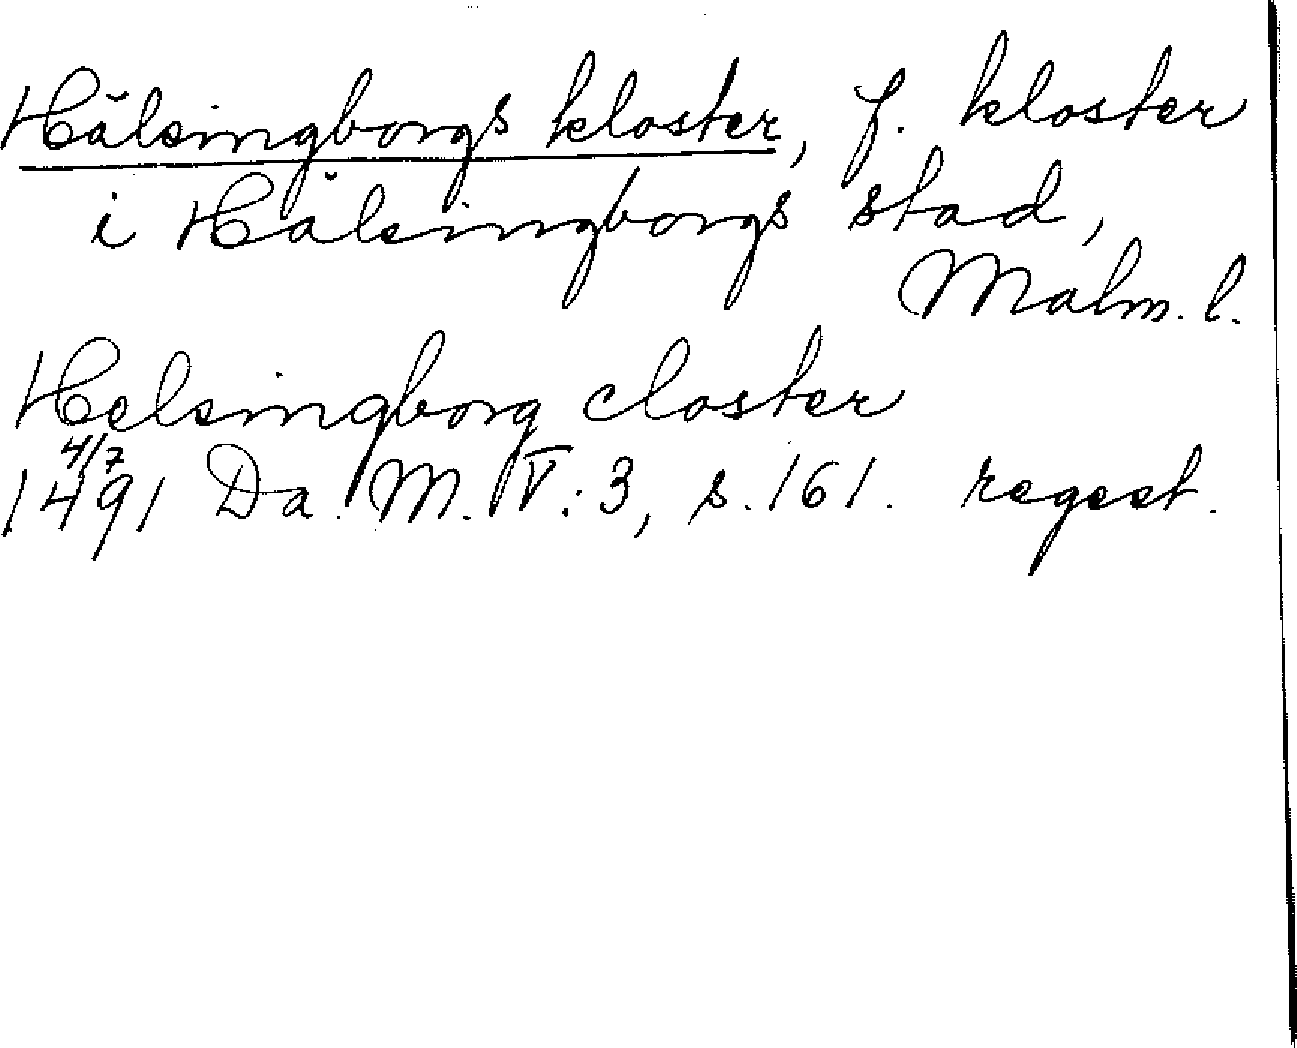 Hälsingborgs kloster, f. kloster
i Hälsingborgs stad,
Malm. l.
Helsingborg closter
4/7
1491 Da. M. V: 3, s. 161. regest.